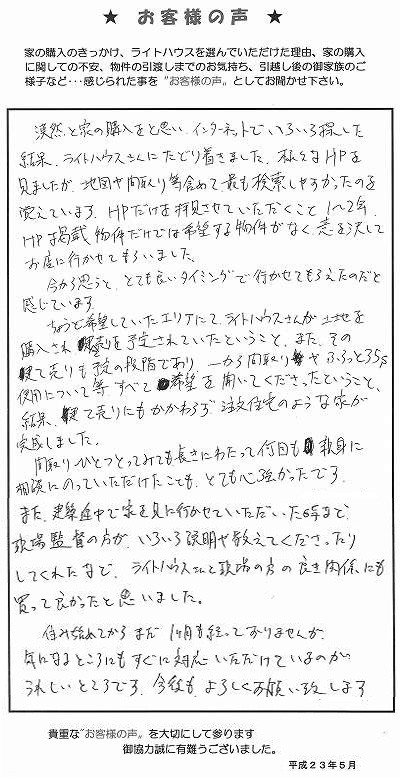 ★ お客様の声 ★
家の購入のきっかけ、ライトハウスを選んでいただけた理由、家の購入
に関しての不安、物件の引渡しまでのお気持ち、引越し後の御家族のご
様子など・・・感じられた事を“お客様の声”としてお聞かせ下さい。
漠然と家の購入をと思い、インターネットでいろいろ探した
結果、ライトハウスさんにたどり着きました。様々なHPを
見ましたが、地図や間取り等含めて最も検索しやすかったのを
覚えています。HPだけを拝見させていただくこと1〜2年、
HP掲載物件だけでは希望する物件がなく、意を決して
お店に行かせてもらいました。
今から思うと、とても良いタイミングで行かせてもらえたのだと
感じています。
ちょうど希望していたエリアにて、ライトハウスさんが土地を
購入され 販売を予定されていたということ、また、その
建て売りも予定の段階であり、一から間取りや
使用について等 すべて 希望を聞いてくださったということ、
結果、建て売りにもかかわらず 注文住宅のような家が
完成しました。
間取りひとつとってみても長きにわたって何回も 親身に
相談にのっていただけたことも、とても心強かったです。
また、建築途中で家を見に行かせていただいた時など、
現場監督の方が、いろいろ説明や教えてくださったり
してくれたなど、ライトハウスさんと現場の方の良き関係にも
買って良かったと思いました。
住み始めてからまだ 1ヶ月も経っておりませんが、
気になるところにもすぐに対応いただけているのが
うれしいところです。今後も、よろしくお願い致します
貴重な“お客様の声”を大切にして参ります
御協力誠に有難うございました。
平成23年5月